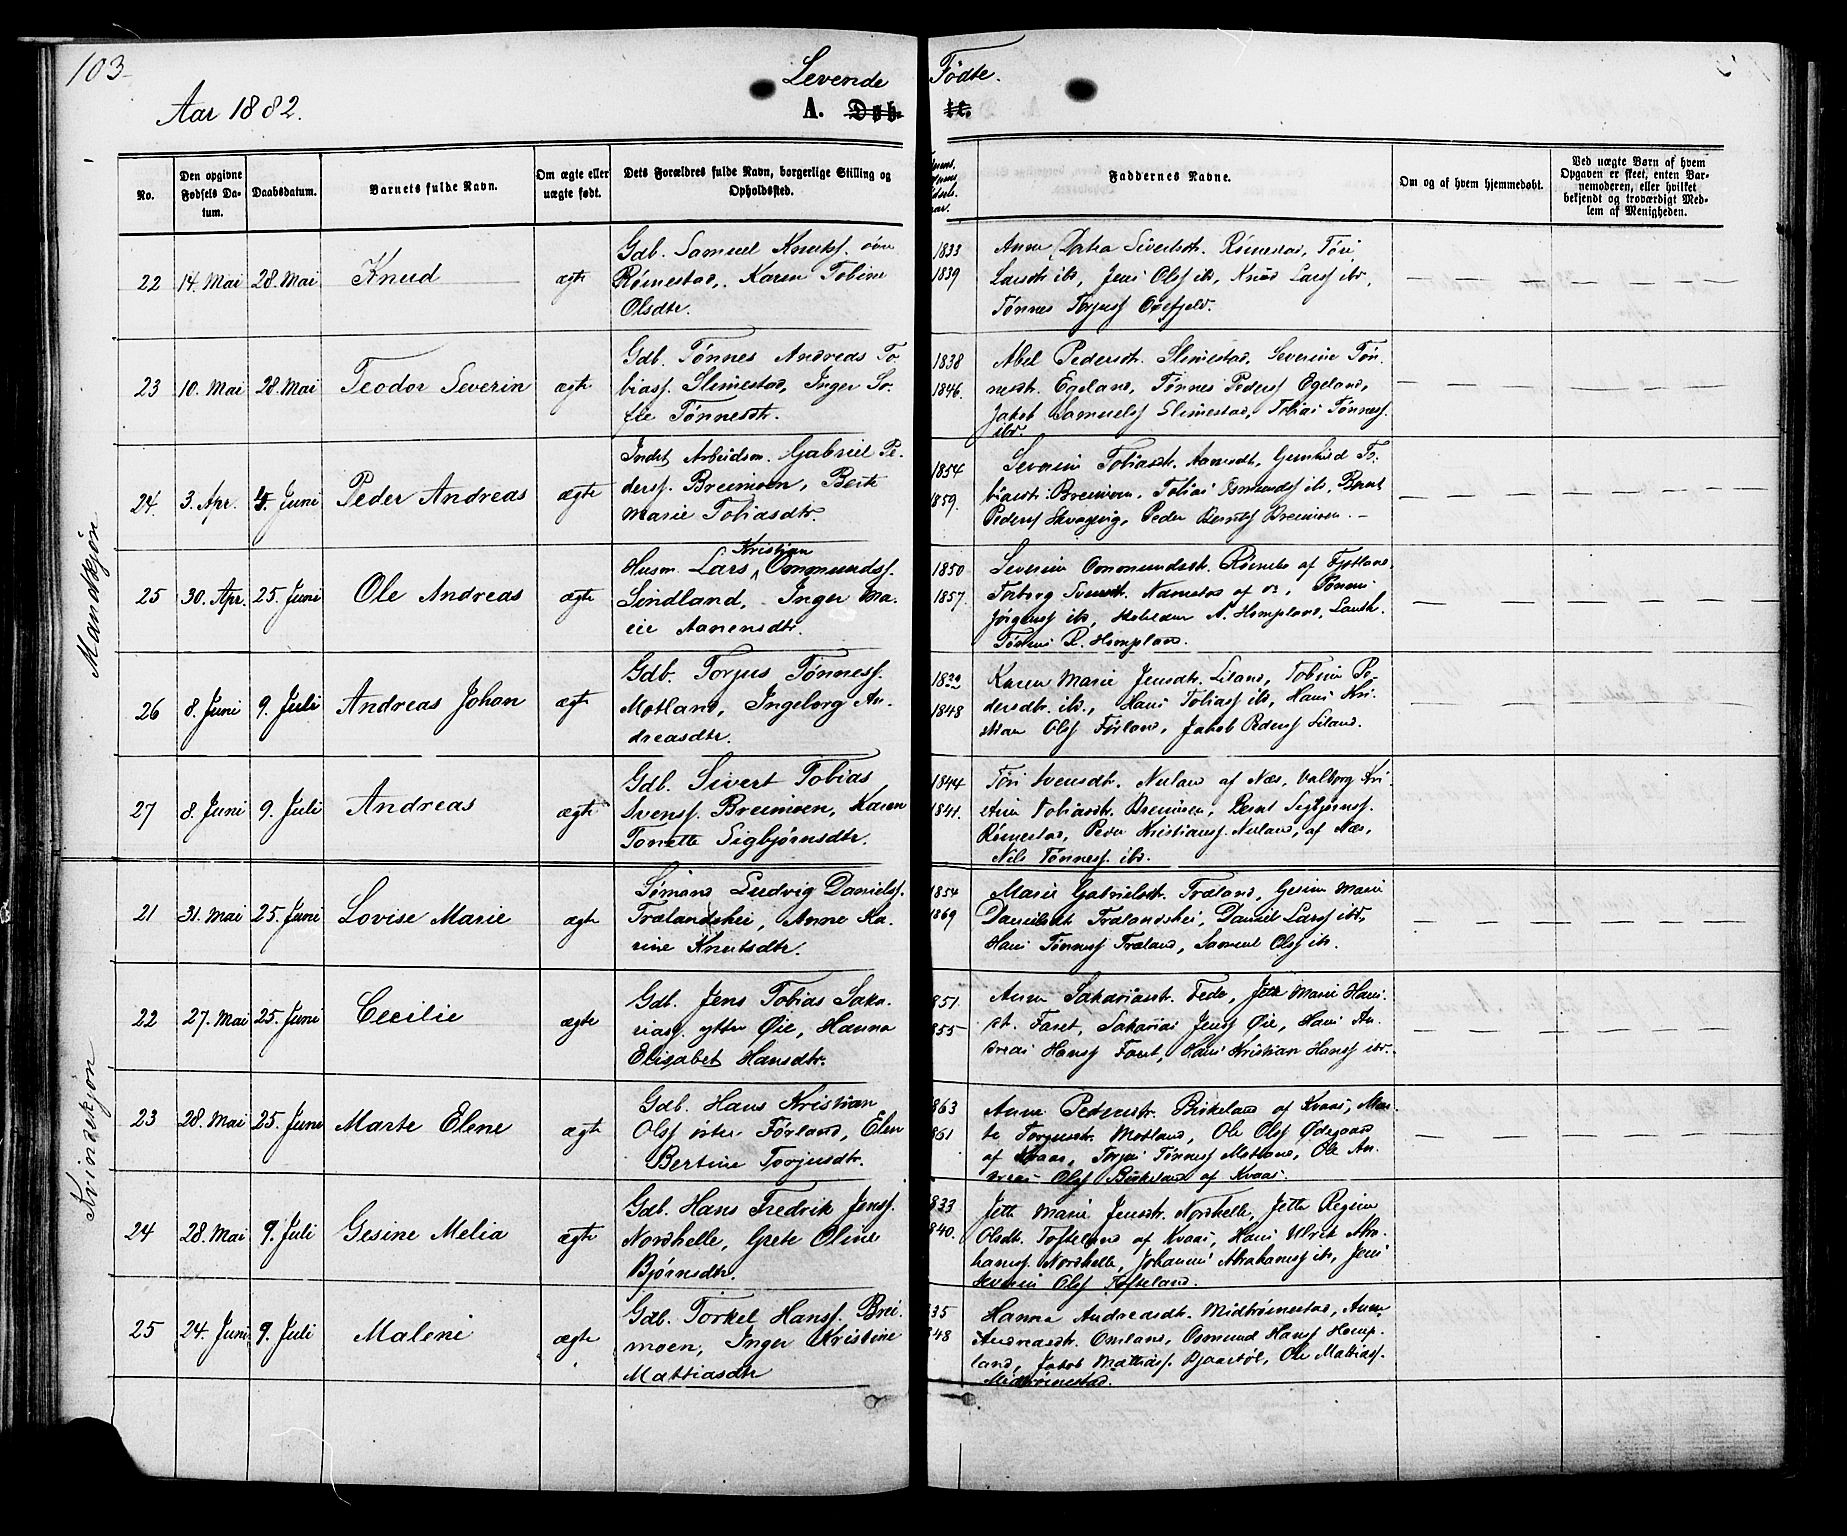 103
Levende Fødte.
Aar 1882.
A. Døb- te.
No.
Den opgivne Fødsels Da-
tum.
Daabsdatum.
Barnets fulde Navn.
Om ægte eller
uægte født.
Dets Forældres fulde Navn, borgerlige Stilling og
Opholdssted.
Faddernes Navne.
Om og af hvem hjemmedøbt.
Ved uægte Barn af hvem
Opgaven er skeet, enten Bar-
nemoderen, eller hvilket
bekjendt og troværdigt Med-
lem af Menigheden.
Mandkjøn
22 14. Mai 28. Mai Knud ægte
Gdb. Samuel Knuts. øvre
Rømestad, Karen Tobine
Olsdtr.
1833
1839
Anne Dorta Sivertsdt. Rømestad, Tøri
Larsdt ibd, Jens Ols ibd, Knud Lars ibd,
Tønnes Torjus Oxefjeld.
23 10. Mai 28. Mai Teodor Severin ægte
Gdb. Tønnes Andreas To-
bias. Slimestad, Inger So-
fie Tønnesdt.
1838
1846.
Abel Pedersdt. Slimestad, Severine Tøn-
nesdt. Egeland, Tønnes Peders Egeland,
Jakob Samuels Slimestad, Tobias Tønnes.
ibd.
24. 3. Apr. 4. Juni Peder Andreas ægte
Indst Arbeidsm. Gabriel Pe-
ders. Breimoen, Berte
Marie Tobiasdtr.
1854
1859.
Severine Tobiasdt. Aamodt, Gunhild To-
biasdt. Breimoen, Tobias Osmunds ibd, Bernt
Peders , Peder Bernts Breimoen. —
25 30. Apr. 25. Juni Ole Andreas ægte
Husm. Lars Kristian Ommunds.
Sindland, Inger Ma-
rie Aanensdtr.
1850
1857.
Severine Ommundsdt. Rømeto af Fjotland,
Torborg Svensdt. Namestad af , Tønnes
Jørgens ibd, N. Hompland,
Tønnes P. Hompland.
26 8. Juni 9. Juli Andreas Johan ægte
Gdb. Torjus Tønnes.
Motland, Ingeborg An-
dreasdtr.
1848
Karen Marie Jensdt. Liland, Tobine Pe-
dersdt. ibd., Hans Tobias ibd, Hans Kri-
stian Ols Førland, Jakob Peders Liland.
27 8. Juni 9. Juli Andreas ægte
Gdb. Sivert Tobias
Svens. Breimoen, Karen
Tonette Sigbjørnsdtr.
1844
1841.
Tøri Svensdt. Nuland af Næs, Valborg Kri-
stine Tobiasdt. Breimoen, Bernt Sigbjørns.
Rømestad, Peder Kristians. Nuland, af Næs,
Nils Tønnes. ibd.
Kvindekjøn
21 31. Mai 25. Juni Lovise Marie ægte
Sømand Ludvig Daniels.
Trælandshei, Anne Ka-
rine Knutsdtr.
1854
1869
Marie Gabrielsdt. Træland, Gesine Marie
Danielsdt Trælandshei, Daniel Lars ibd,
Hans Tønnes Træland, Samuel Ols ibd.
22 27. Mai 25. Juni Cecilie ægte
Gdb. Jens Tobias Saka-
rias. ytter Øie, Hanna
Elisabet Hansdtr.
851
855
Anne Sakariasdt. Fede, Jette Marie Hans-
dt. Faret, Sakarias Jens Øie, Hans An-
dreas Hans Faret, Hans Kristian Hans ibd.
23 28. Mai 25. Juni Marte Elene ægte
Gdb. Hans Kristian
Ols øster Førland, Elen
Bertine Torjusdtr.
863
861
Anne Pedersdtr. Birkeland af Kvaas, Mar-
te Torjusdtr. Motland, Ole Ols Ødegaard
af Kvaas, Torjus Tønnes Motland, Ole An-
dreas Ols Birkeland af Kvaas.
24 28. Mai 9. Juli Gesine Melia ægte
Gdb. Hans Fredrik Jens.
Nordhelle, Grete Oline
Bjørnsdtr.
833
840.
Jette Marie Jensdtr. Nordhelle, Jette Regine
Olsdt. Tofteland af Kvaas, Hans Ulrik Abra-
hams. Nordhelle, Johannes Abrahams ibd, Jens
Severin Ols Tofteland.
25 24. Juni 9. Juli Maleni ægte
Gdb. Torkel Hans. Brei-
moen, Inger Kristine
Mattiasdtr
835
848
Hanna Andreasdt. Midtrømestad, Anne
Andreasdt. Omland, Osmund Hans Homp-
land, Jakob Mathias. Bjaastøl, Ole Mattias.
Midtrømestad.